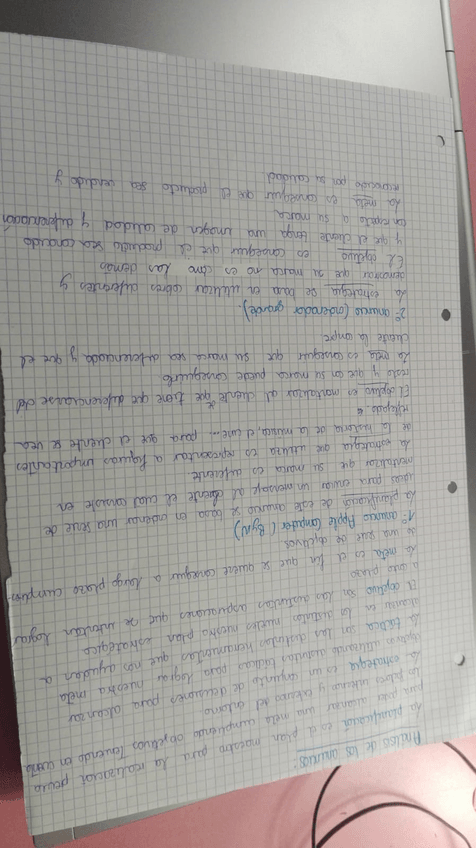 Análisis de los anuncios:
La planificación es el plan maestro para la realización previa
para poder alcanzar una meta cumpliendo objetivos. Teniendo en cuenta
los factores internos y externos del entorno
La estrategia es un conjunto de decisiones para alcanzar
objetivos utilizando distintas tácticas para lograr nuestra meta
La táctica son las distintas herramientas que nos ayudan a
alcanzar en los distintos niveles nuestro plan estratégico
El objetivo son las distintas aspiraciones que se intentan lograr
a corto plazo
La meta es el fin que se quiere conseguir a largo plazo cumpliendo
de una serie de objetivos
1º anuncio Apple Computer (ByN)
La planificación de este anuncio se basa en ordenar una serie de
ideas para enviar un mensaje al cliente el cual consiste en
mentalizar que su marca es diferente
La estrategia que utiliza es representar a figuras importantes
de la historia de la música, el cine... para que el cliente se vea
reflejado
El objetivo es mentalizar al cliente que tiene que diferenciarse del
resto y que con su marca puede conseguirlo
La meta es conseguir que su marca sea diferenciada y que el
cliente la compre
2º anuncio (ordenador grande).
La estrategia se basa en utilizar colores diferentes y
demostrar que su marca no es como las demás
El objetivo es conseguir que el producto sea conocido
y que el cliente tenga una imagen de calidad y diferenciación
con respecto a su marca
La meta es conseguir que el producto sea vendido y
reconocido por su calidad